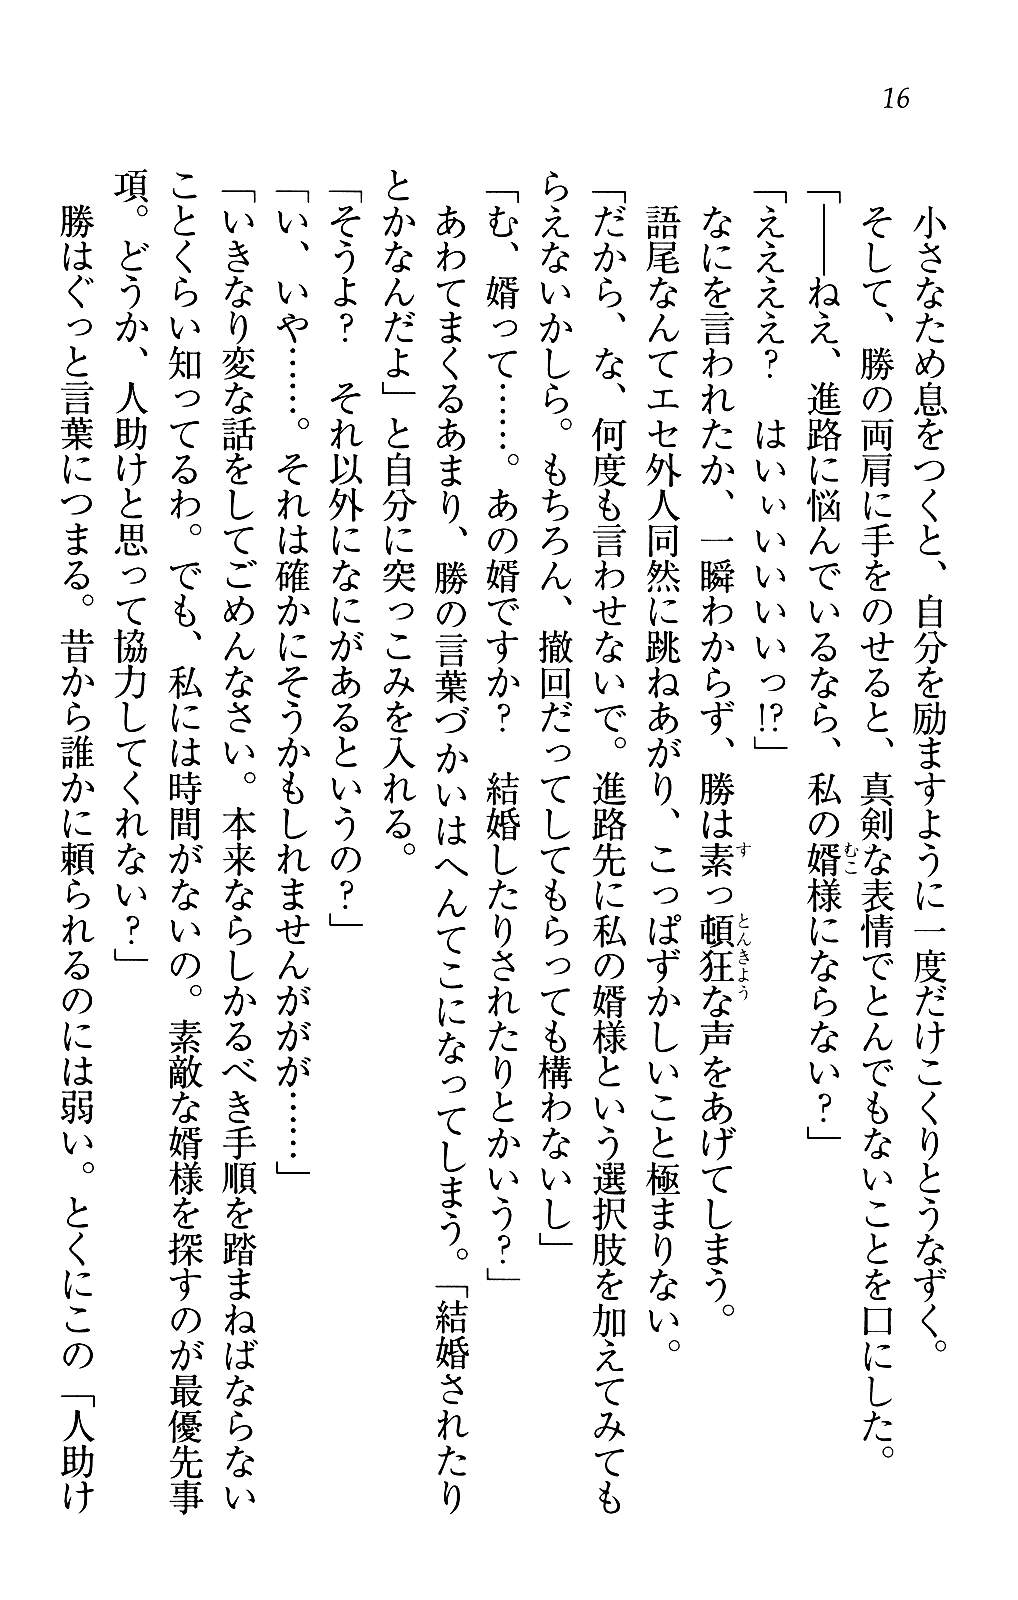 16
小さなため息をつくと、自分を励ますように一度だけこくりとうなずく。
そして、勝の両肩に手をのせると、真剣な表情でとんでもないことを口にした。
「――ねえ、進路に悩んでいるなら、私の婿様にならない？」
むこ
「ええええ？　はいぃいいいいっ!?」
なにを言われたか、一瞬わからず、勝は素っ頓狂な声をあげてしまう。
す
とんきよう
語尾なんてエセ外人同然に跳ねあがり、こっぱずかしいこと極まりない。
「だから、な、何度も言わせないで。進路先に私の婿様という選択肢を加えてみても
らえないかしら。もちろん、撤回だってしてもらっても構わないし」
「む、婿って……。あの婿ですか？　結婚したりされたりとかいう？」
あわてまくるあまり、勝の言葉づかいはへんてこになってしまう。「結婚されたり
とかなんだよ」と自分に突っこみを入れる。
「そうよ？　それ以外になにがあるというの？」
「い、いや……。それは確かにそうかもしれませんががが……」
「いきなり変な話をしてごめんなさい。本来ならしかるべき手順を踏まねばならない
ことくらい知ってるわ。でも、私には時間がないの。素敵な婿様を探すのが最優先事
項。どうか、人助けと思って協力してくれない？」
勝はぐっと言葉につまる。昔から誰かに頼られるのには弱い。とくにこの「人助け